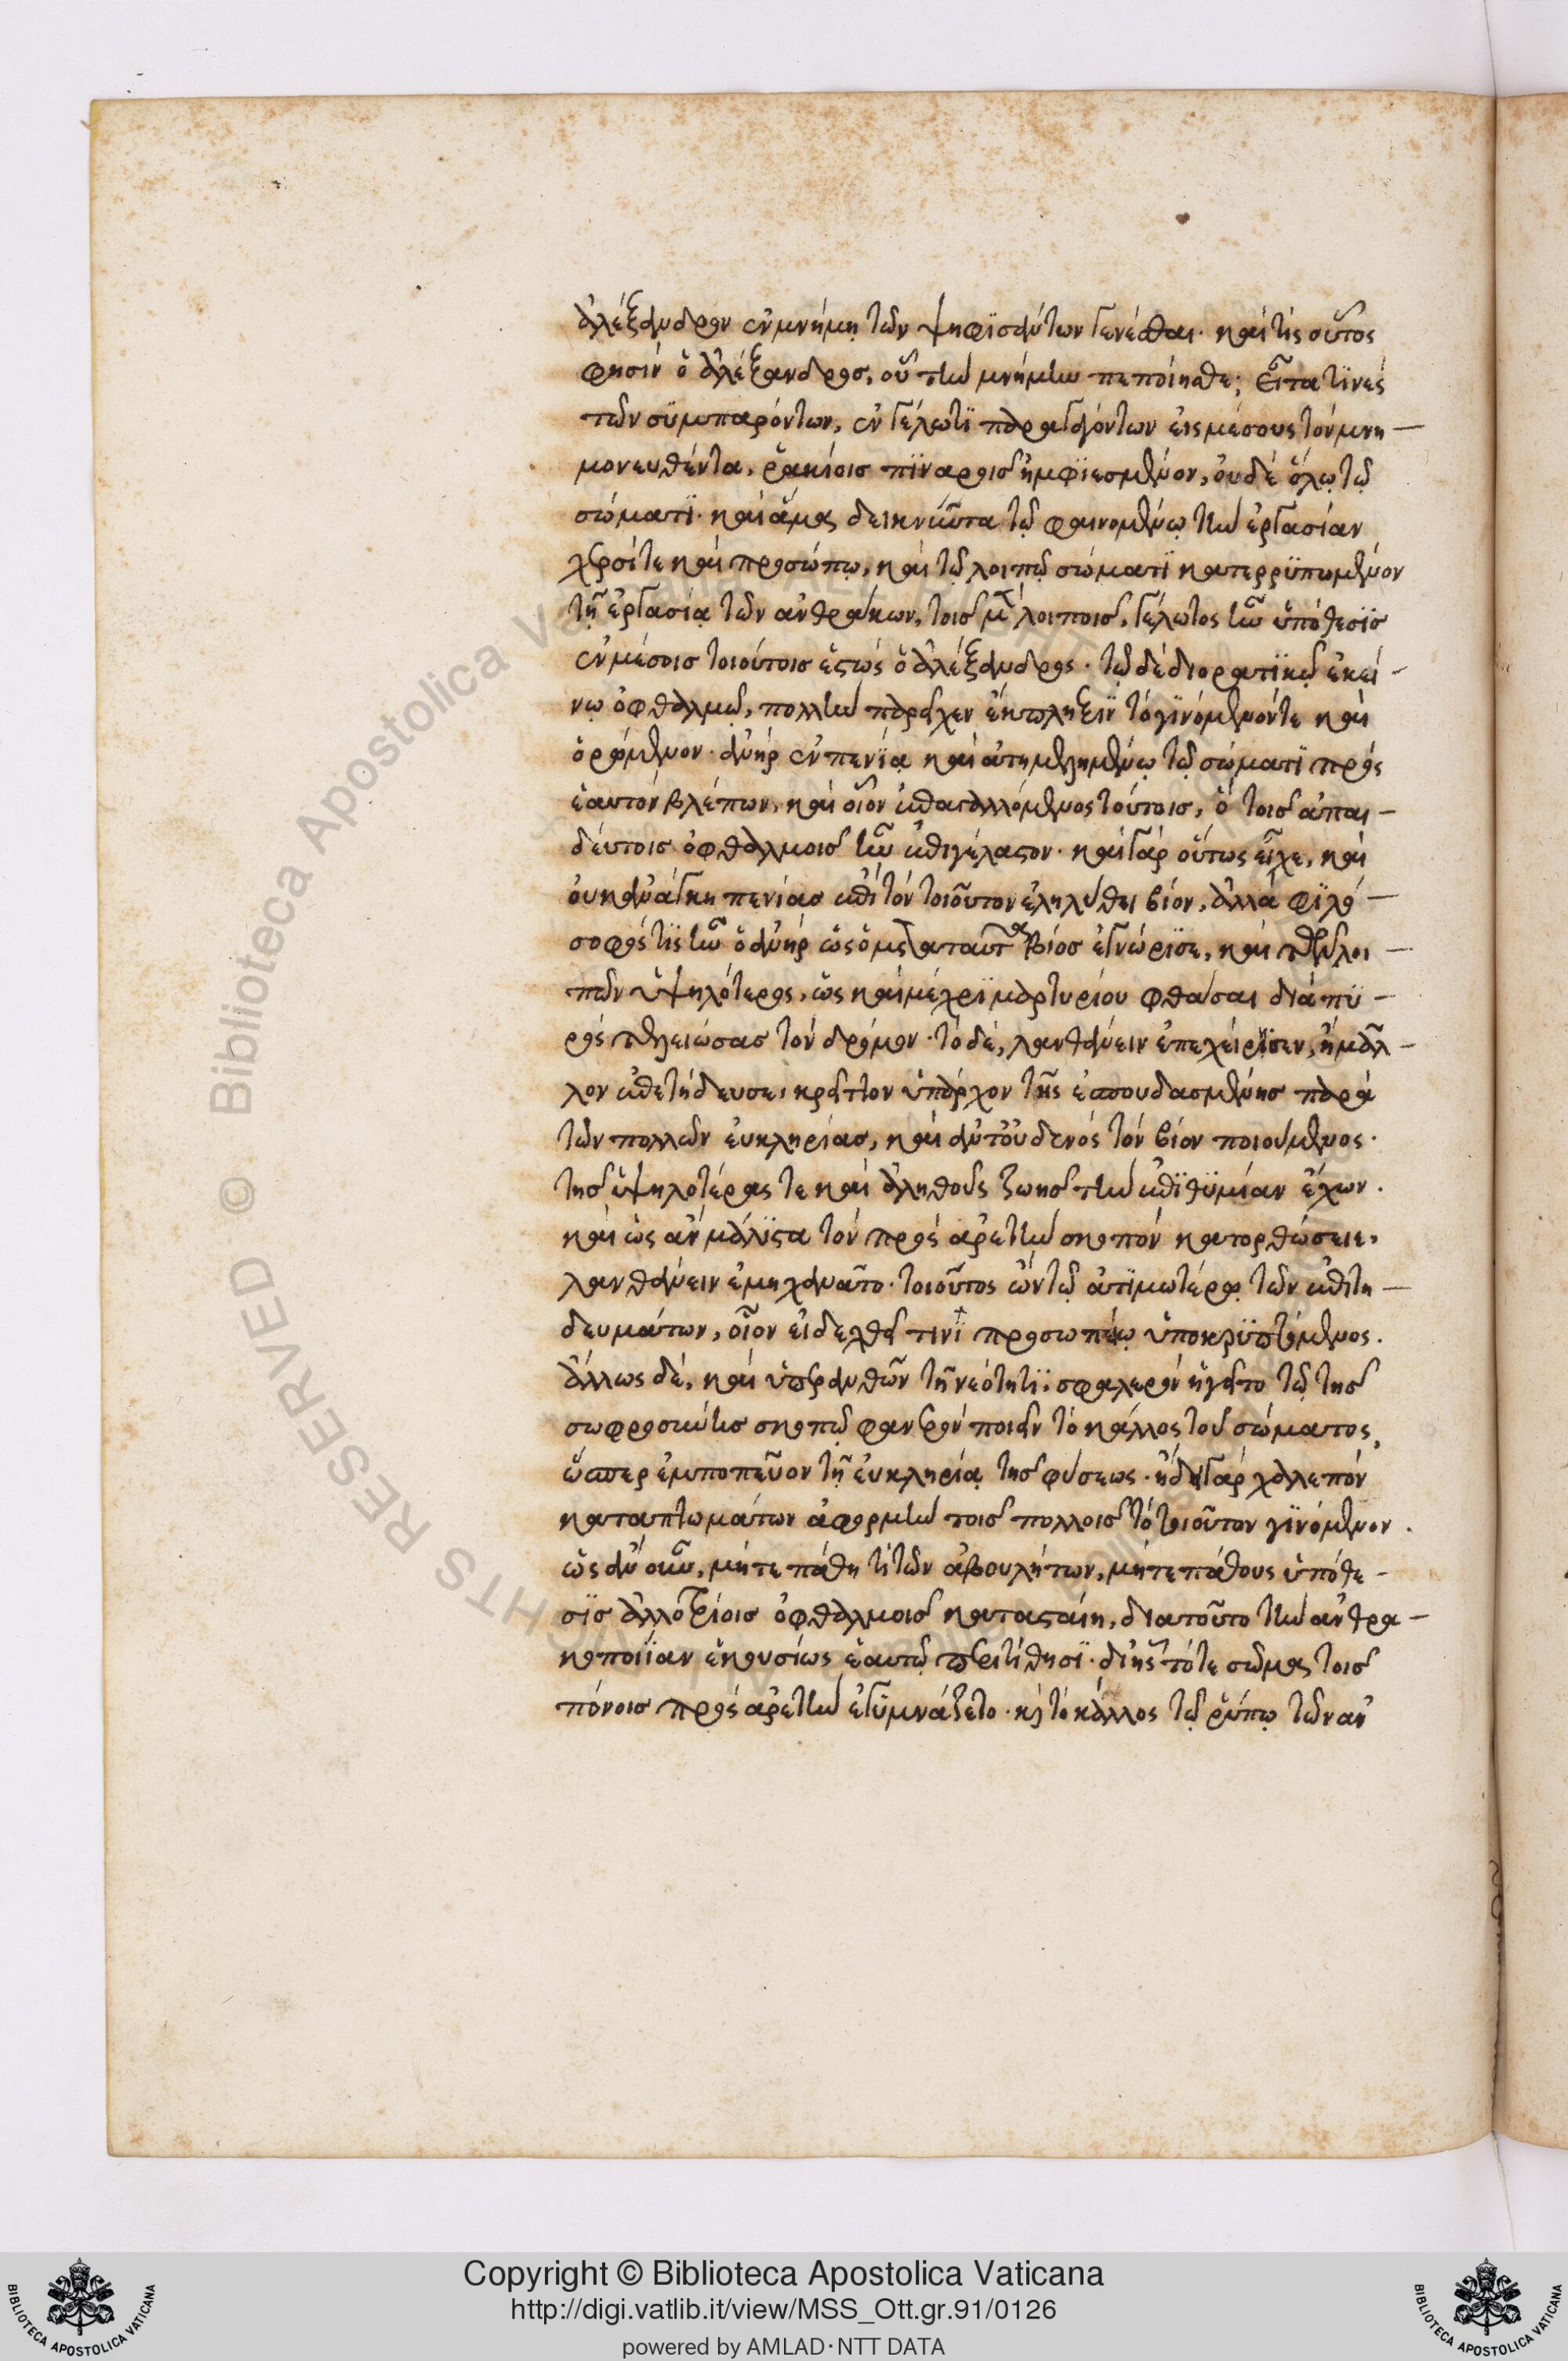 ἀλέξανδρον ἐν μνήμη τῶν ψηφϊσάντων γενέσθαι· καὶ τίς οὗτος
φησὶν ὁ ἀλέξανδρος, οὗ τὴν μνήμην πεποίησθε; εἶτα τϊνὲς
τῶν σϋμπαρόντων, ἐν γέλωτϊ παραγαγόντων εἰς μέσους τὸν μνη-
μονευθέντα, ῥακίοις πϊναροῖς ἠμφϊεσμένον, οὐδὲ ὅλῳ τῷ
σώματϊ· καὶ ἅμα δεικνῦντα τῷ φαινομένῳ τὴν ἐργασίαν
χερσί τε καὶ προσώπῳ, καὶ τῷ λοιπῷ σώματϊ κατερρϋπωμένον
τῇ ἐργασίᾳ τῶν ἀνθράκων, τοῖς μὲν λοιποῖς, γέλωτος ἦν ὑπόθεσϊς
ἐν μέσοις τοιούτοις ἑστὼς ὁ ἀλέξανδρος· τῷ δὲ διορατϊκῷ ἐκεί-
νῳ ὀφθαλμῷ, πολλὴν παρεῖχεν ἔκπληξϊν τὸ γϊνόμενόν τε καὶ
ὁρώμενον· ἀνὴρ ἐν πενϊᾳ καὶ ἀτημελημένῳ τῷ σώματϊ πρὸς
ἑαυτὸν βλέπων, καὶ οἷον ἐπαγαλλόμενος τούτοις, ὃ τοῖς ἀπαι-
δεύτοις ὀφθαλμοῖς ἦν ἐπιγέλαστον· καὶ γὰρ οὕτως εἶχε, καὶ
οὐκ ἀνάγκη πενίας ἐπὶ τὸν τοιοῦτον ἐληλύθει βίον, ἀλλὰ φϊλό-
σοφός τϊς ἦν ὁ ἀνὴρ ὡς ὁ μετὰ ταῦτα βίος ἐγνώρϊσε, καὶ τῶν λοι-
πῶν ὑψηλότερος, ὡς καὶ μέχρϊ μαρτυρίου φθάσαι διὰ πϋ-
ρὸς τελειώσας τὸν δρόμον· τὸ δὲ, λανθάνειν ἐπεχείρϊσεν, ἢ μᾶλ-
λον ἐπετήδευσε, κρεῖττον ὑπάρχον τῆς ἐσπουδασμένης παρὰ
τῶν πολλῶν εὐκληρίας, καὶ ἀντ' οὐδενὸς τὸν βίον ποιούμενος.
τῆς ὑψηλοτέρας τε καὶ ἀληθοῦς ζωῆς τὴν ἐπϊθϋμίαν ἔχων.
καὶ ὡς ἂν μάλϊστα τὸν πρὸς ἀρετὴν σκοπὸν κατορθώσειε,
λανθάνειν ἐμηχανᾶτο· τοιοῦτος ὢν τῷ ἀτϊμωτέρῳ τῶν ἐπιτη-
δευμάτων, οἷον εἰδεχθεῖ τινϊ προσωπείῳ ὑποκρϋπτόμενος.
ἄλλως δὲ, καὶ ὑπερανθῶν τῇ νεότητϊ, σφαλερὸν ἡγεῖτο τῷ τῆς
σωφροσύνης σκοπῷ φανερὸν ποιεῖν τὸ κάλλος τοῦ σώματος,
ὥσπερ ἐμποπεῦον τῇ εὐκληρίᾳ τῆς φύσεως· ᾔδει γὰρ χαλεπῶν
καταπτωμάτων ἀφορμὴν τοῖς πολλοῖς τὸ τοιοῦτον γϊνόμενον.
ὡς ἂν οὖν, μήτε πάθῃ τὶ τῶν ἀβουλήτων, μήτε πάθους ὑπόθε-
σϊς ἀλλοτρίοις ὀφθαλμοῖς κατασταίη, διατοῦτο τὴν ἀνθρα-
κοποιΐαν ἑκουσίως ἑαυτῷ περιτίθησϊ· δι' ἧς τό τε σῶμα τοῖς
πόνοις πρὸς ἀρετὴν ἐγϋμνάζετο· κ τὸ κάλλος τῷ ῥύπῳ τῶν ἀν
Copyright © Biblioteca Apostolica Vaticana
http://digi.vatlib.it/view/MSS_Ott.gr.91/0126
powered by AMLAD·NTT DATA